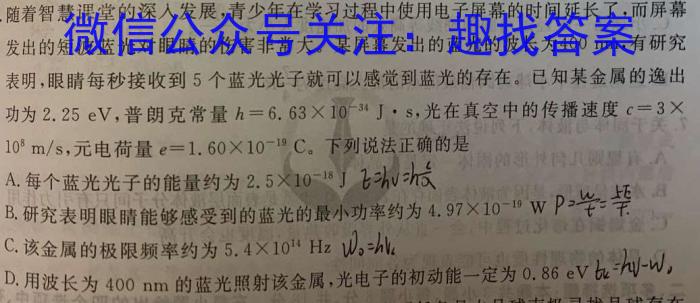 随着智慧课堂的深入发展,青少年在学习过程中使用电子屏幕的时间延长了,而屏幕
微信公众号关注:趣找答案
发出的短波蓝光对眼睛的伤害非常大。某屏幕发出的蓝光的波长为400 nm,有研究
表明,眼睛每秒接收到 5 个蓝光光子就可以感觉到蓝光的存在。已知某金属的逸出
功为 2.25 eV,普朗克常量 h=6.63×10⁻³⁴ J·s,光在真空中的传播速度 c=3×
10⁸ m/s,元电荷量 e=1.60×10⁻¹⁹ C。下列说法正确的是
A.每个蓝光光子的能量约为 2.5×10⁻¹⁸ J E=hν=h c/λ
B.研究表明眼睛能够感受到的蓝光的最小功率约为 4.97×10⁻¹⁹ W P=W/t=5E/t
C.该金属的极限频率约为 5.4×10¹⁴ Hz W₀=hν
D.用波长为 400 nm 的蓝光照射该金属,光电子的初动能一定为 0.86 eV Eₖ=hν-W₀